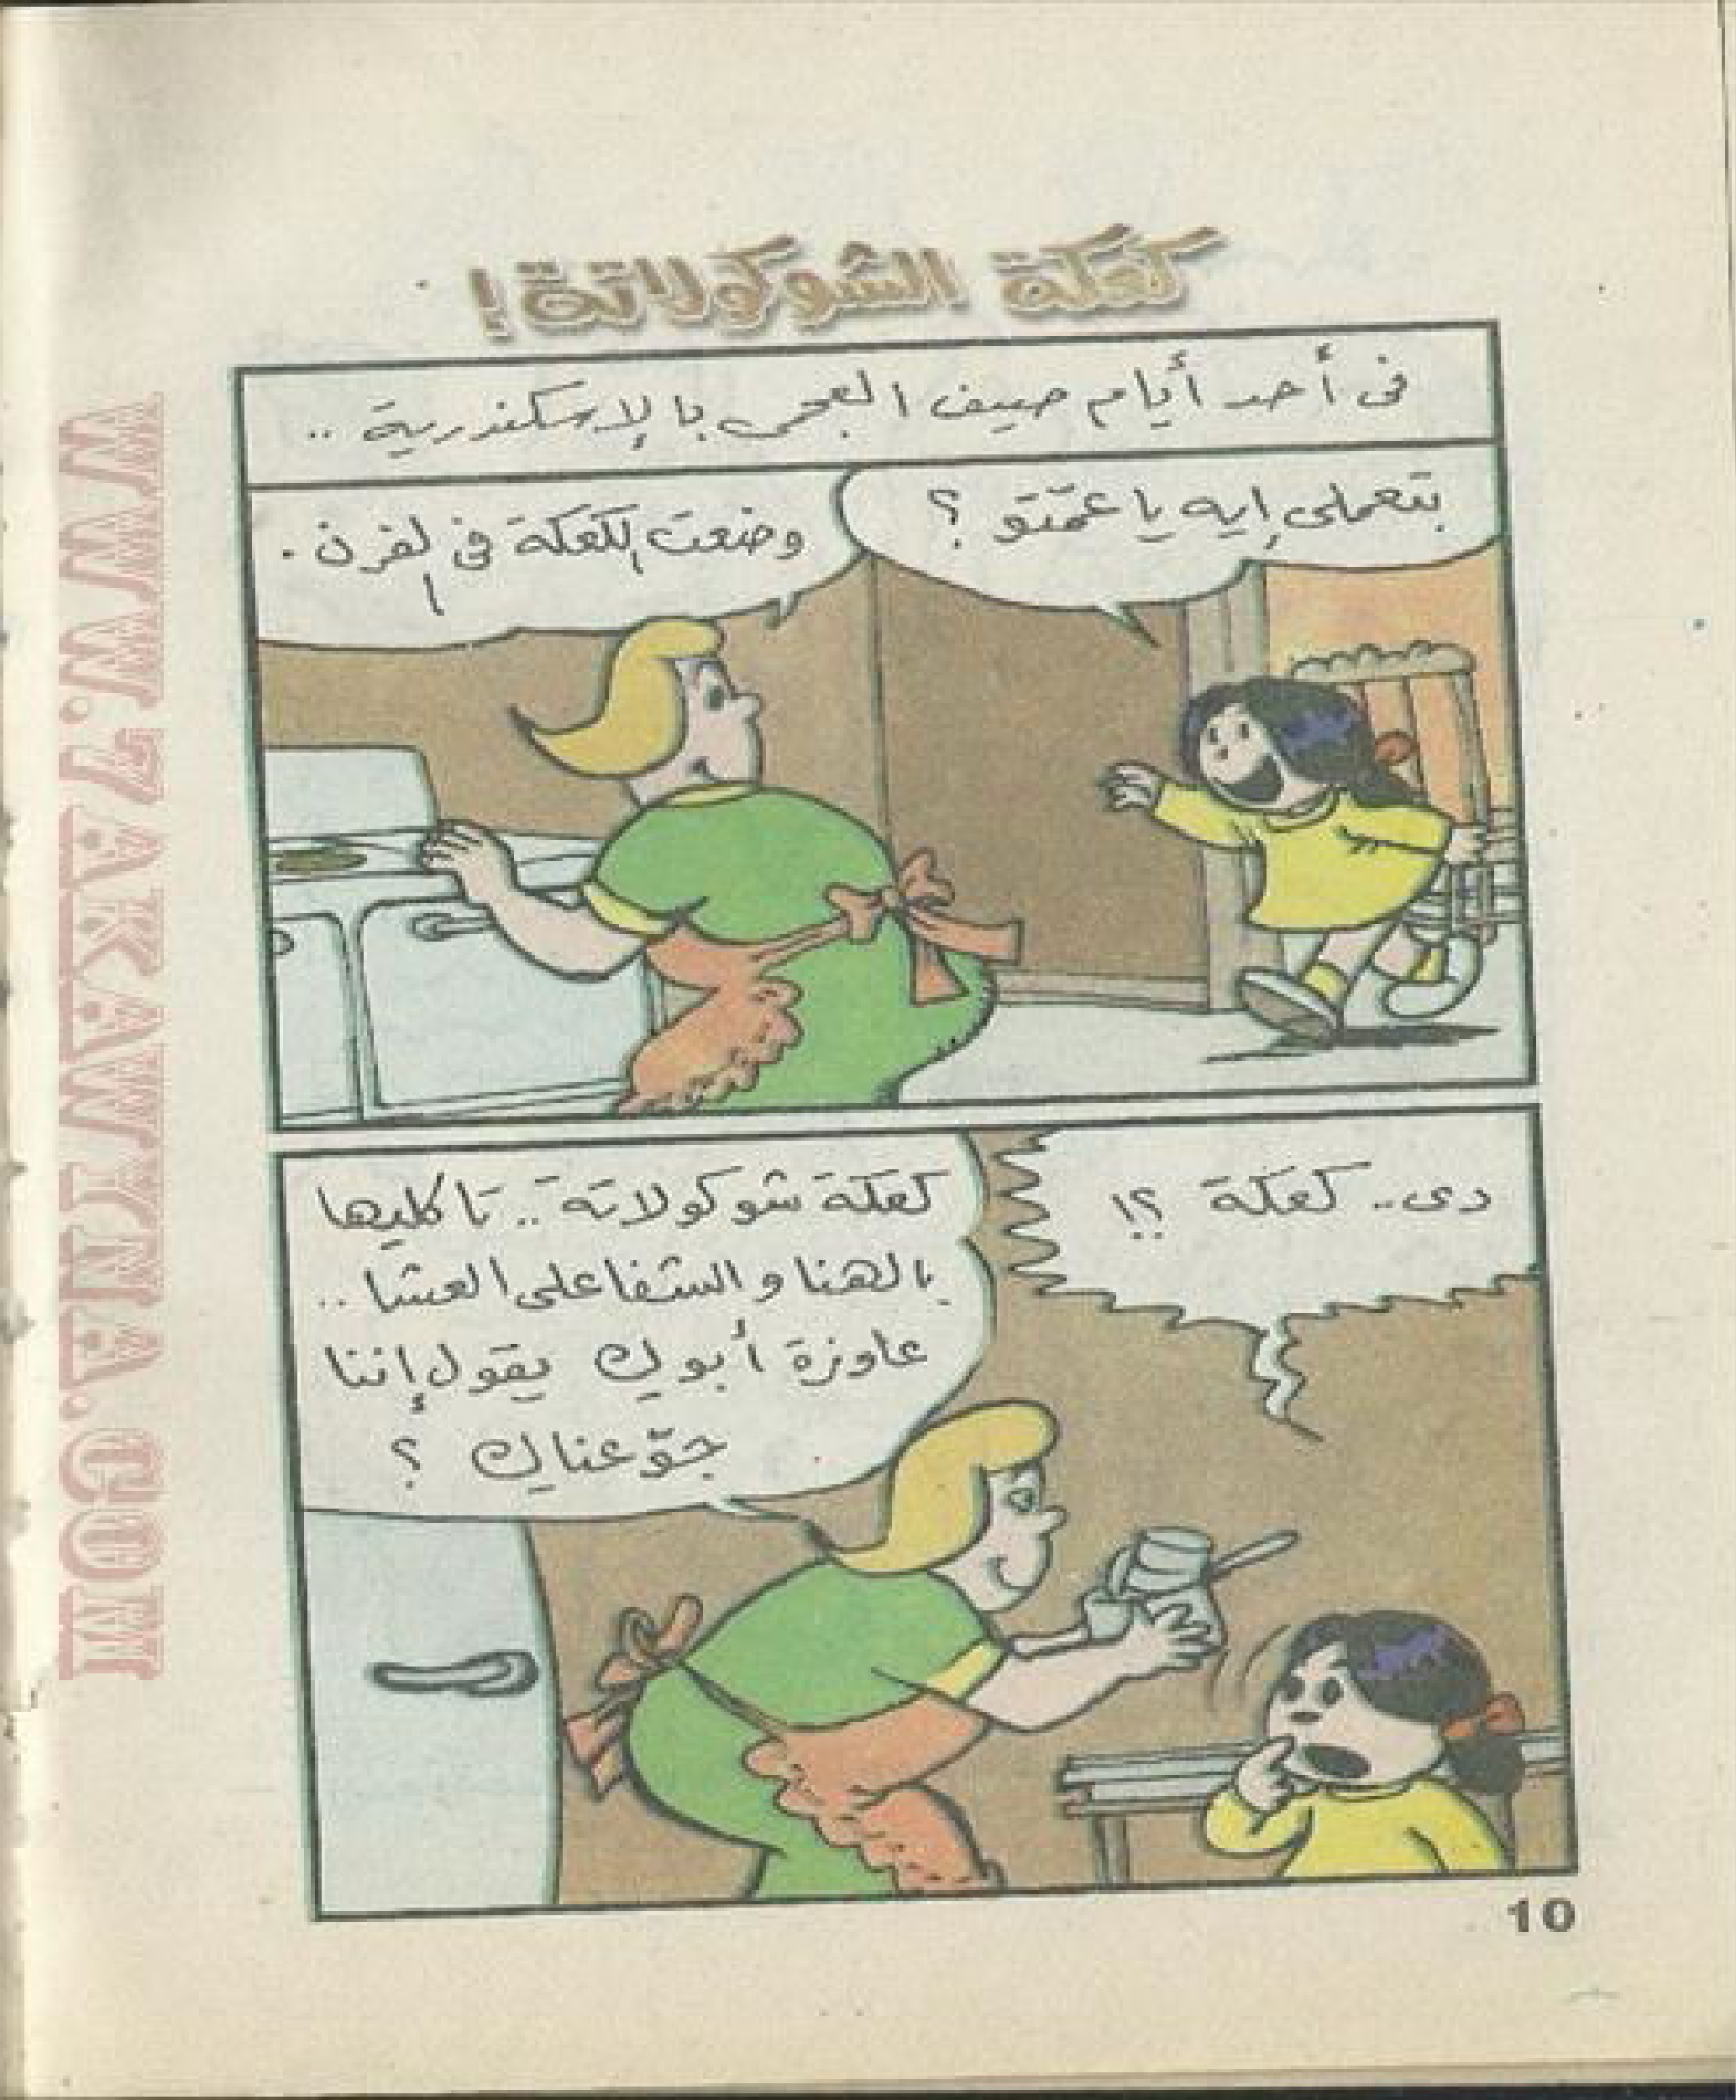 كعكة الشوكولاتة!
فى أحد أيام صيف العجمى بالإسكندرية ..
بتعملى إيه يا عمّتو ؟
وضعت الكعكة فى الفرن .
دى.. كعكة ؟!
كعكة شوكولاتة .. تاكليها
بالهنا و الشفا على العشا ..
عاوزة أبوكِ يقول إننا
جوّعناكِ ؟
10
WWW.7AKAWITNA.COM